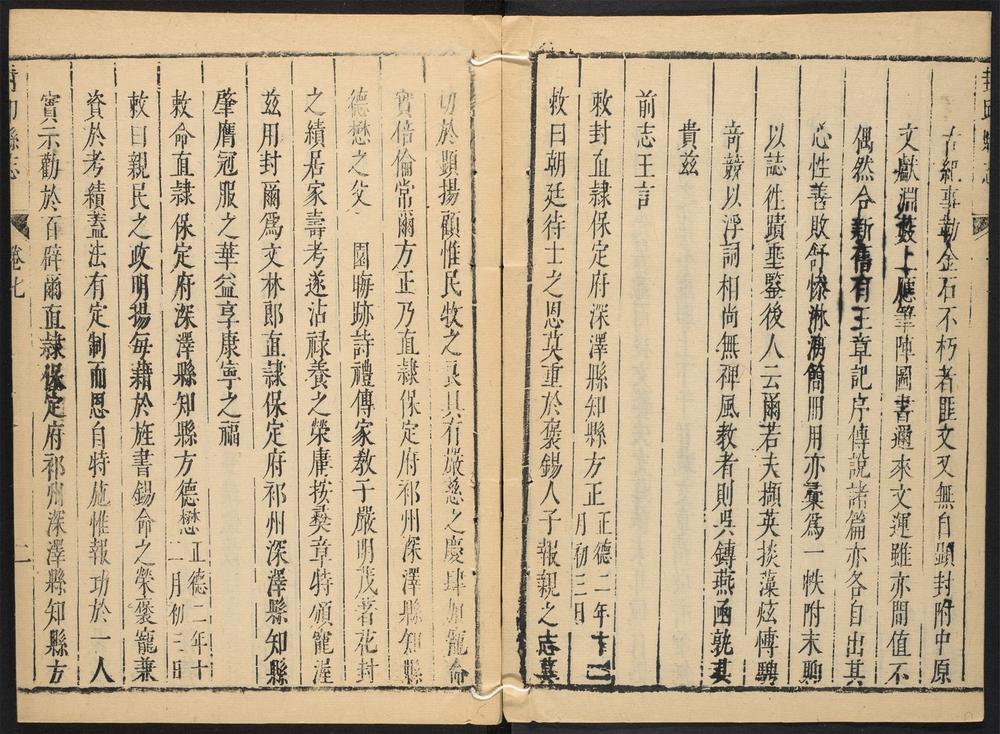 封丘縣志
古紀事勒金石不朽者匪文又無自顯封附中原
文獻淵藪上應筆陣圖書邇來文運雖亦間值不
偶然合新舊有王章記序傳說諸篇亦各自出其
心性善敗舒慘淋漓簡冊用亦彙為一帙附末聊
以誌徃蹟垂鑒後人云爾若夫擷英掞藻炫慱騁
奇競以浮詞相尚無裨風教者則吳鏄燕凾孰其
貴茲
前志王言
敕封直隷保定府深澤縣知縣方正 正德二年十二 月初三日
敕曰朝廷待士之恩莫重於褒錫人子報親之志莫
切於顯揚顧惟民牧之良具有嚴慈之慶肆加寵命
實倍倫常爾方正乃直隷保定府祁州深澤縣知縣
德懋之父 園晦跡詩禮傳家教子嚴明茂著花封
之績居家壽考遂沾禄養之榮庸按彝章特頒寵渥
兹用封爾爲文林郎直隷保定府祁州深澤縣知縣
肇膺冠服之華益享康寧之福
敕命直隷保定府深澤縣知縣方德懋 正德二年十 二月初三日
敕曰親民之政明揚每藉於旌書錫命之榮褒寵兼
資於考績蓋法有定制而恩自特施惟報功於一人
實示勸於百辟爾直隷保定府祁州深澤縣知縣方
封丘縣志 卷七 二